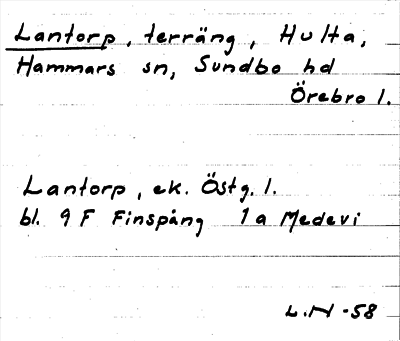 Lantorp, terräng, Hulta,
Hammars sn, Sundbo hd
Örebro l.
Lantorp, ek. Östg. l.
bl. 9F Finspång 1a Medevi
L.N -58